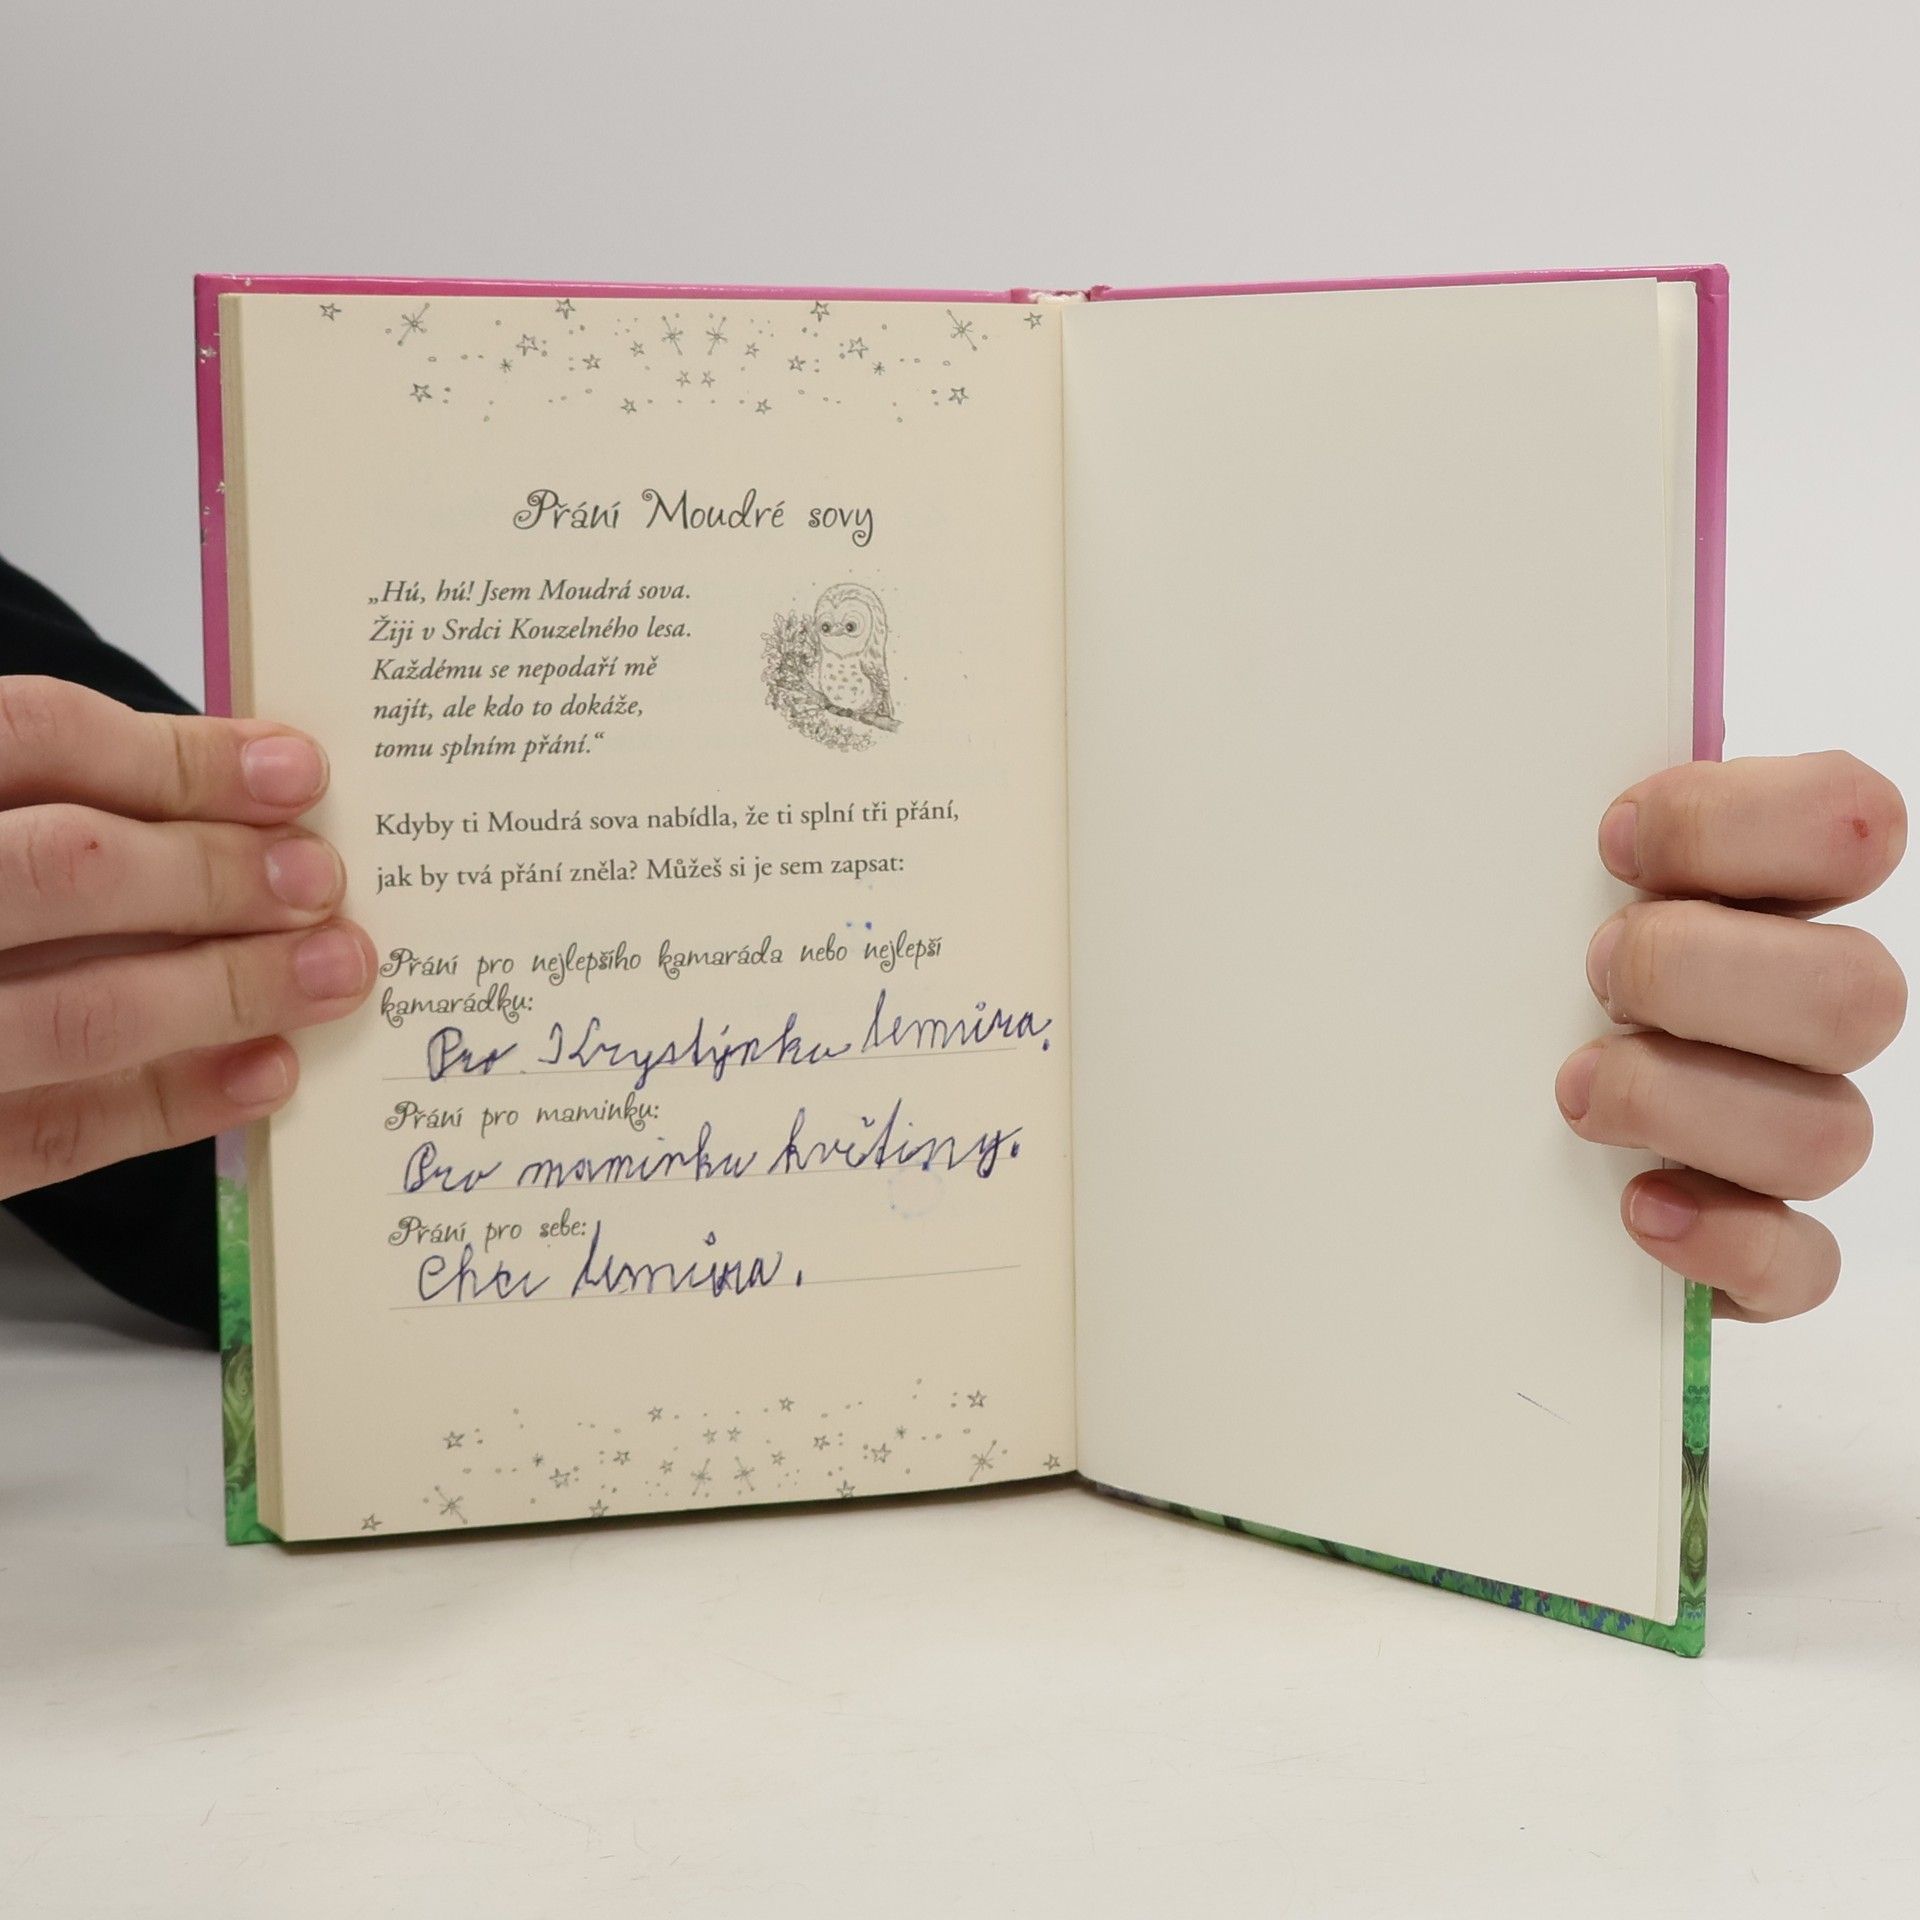 Přání Moudré sovy
„Hú, hú! Jsem Moudrá sova.
Žiji v Srdci Kouzelného lesa.
Každému se nepodaří mě
najít, ale kdo to dokáže,
tomu splním přání.“
Kdyby ti Moudrá sova nabídla, že ti splní tři přání,
jak by tvá přání zněla? Můžeš si je sem zapsat:
Přání pro nejlepšího kamaráda nebo nejlepší
kamarádku:
Pro Krystýnku lemůra.
Přání pro maminku:
Pro maminku květiny.
Přání pro sebe:
Chci lemůra.